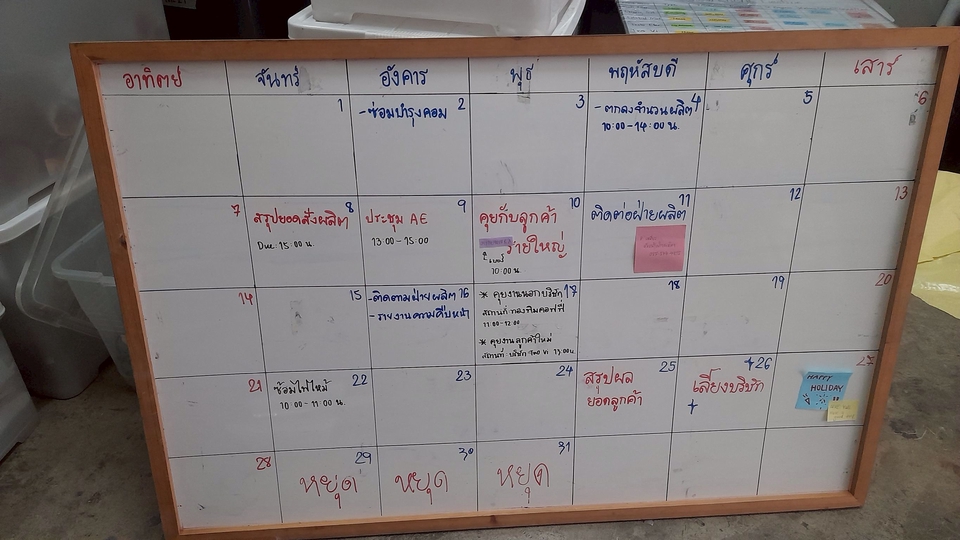 อาทิตย์ จันทร์ อังคาร พุธ พฤหัสบดี ศุกร์ เสาร์
1 2 3 4 5 6
-ซ่อมบำรุงคอม
-ตกลงจำนวนผลิต
10:00-14:00 น.
7 8 9 10 11 12 13
สรุปยอดสั่งผลิต
Due: 15:00 น.
ประชุม AE
13:00-15:00
คุยกับลูกค้า
รายใหญ่
10:00 น.
ติดต่อฝ่ายผลิต
14 15 16 17 18 19 20
-ติดตามฝ่ายผลิต
-รายงานความคืบหน้า
* คุยงานนอกบริษัท
11:00-12:00
* คุยงานลูกค้าใหม่
สถานที่ บริษัท 13:00น.
21 22 23 24 25 26 27
ซ้อมไฟไหม้
10:00-11:00 น.
สรุปผล
ยอดลูกค้า
เลี้ยงบริษัท
HAPPY
HOLIDAY
28 29 30 31
หยุด หยุด หยุด